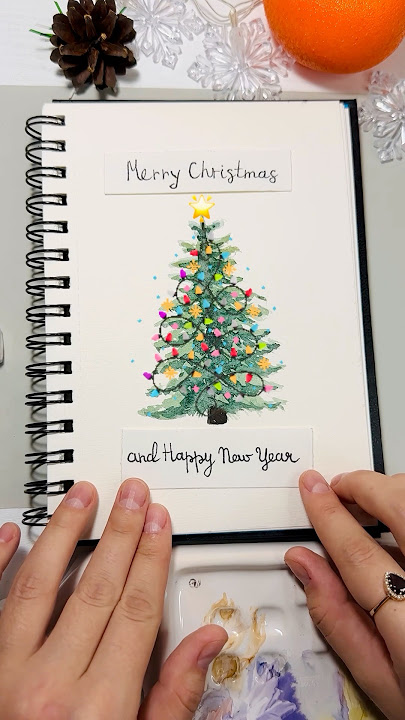 Merry Christmas
and Happy New Year